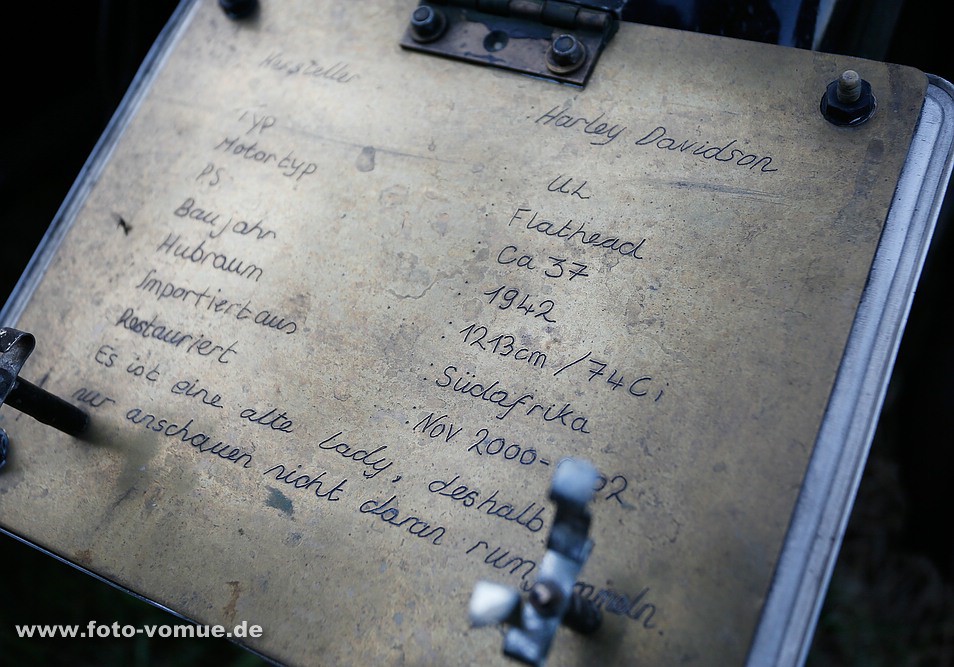 Hersteller : Harley Davidson
Typ : UL
Motortyp : Flathead
PS : Ca 37
Baujahr : 1942
Hubraum : 1213cm / 74Ci
Importiert aus : Südafrika
Restauriert : Nov 2000-
Es ist eine alte Lady, deshalb
nur anschauen nicht daran
www.foto-vomue.de